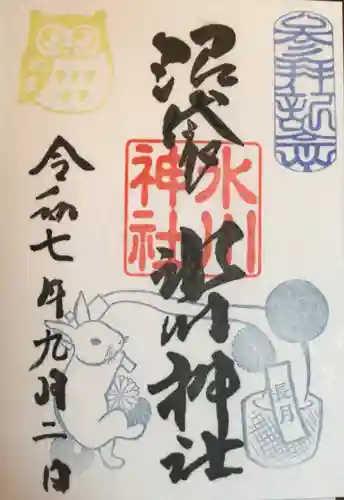 参拝記念
沼袋 氷川神社
氷川神社
長月
令和七年九月二日